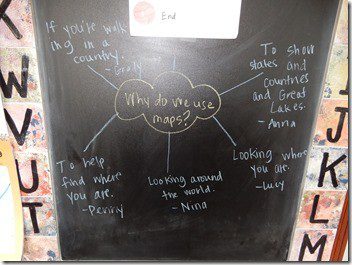 End
If you're walk
ing in a
country.
- Grady
To show
states and
countries
and Great
Lakes.
- Anna
Why do we use
maps?
To help
find where
you are.
- Penny
Looking around
the world.
- Nina
Looking where
you are.
- Lucy
K
W
V
U
T
I
J
K
L
M